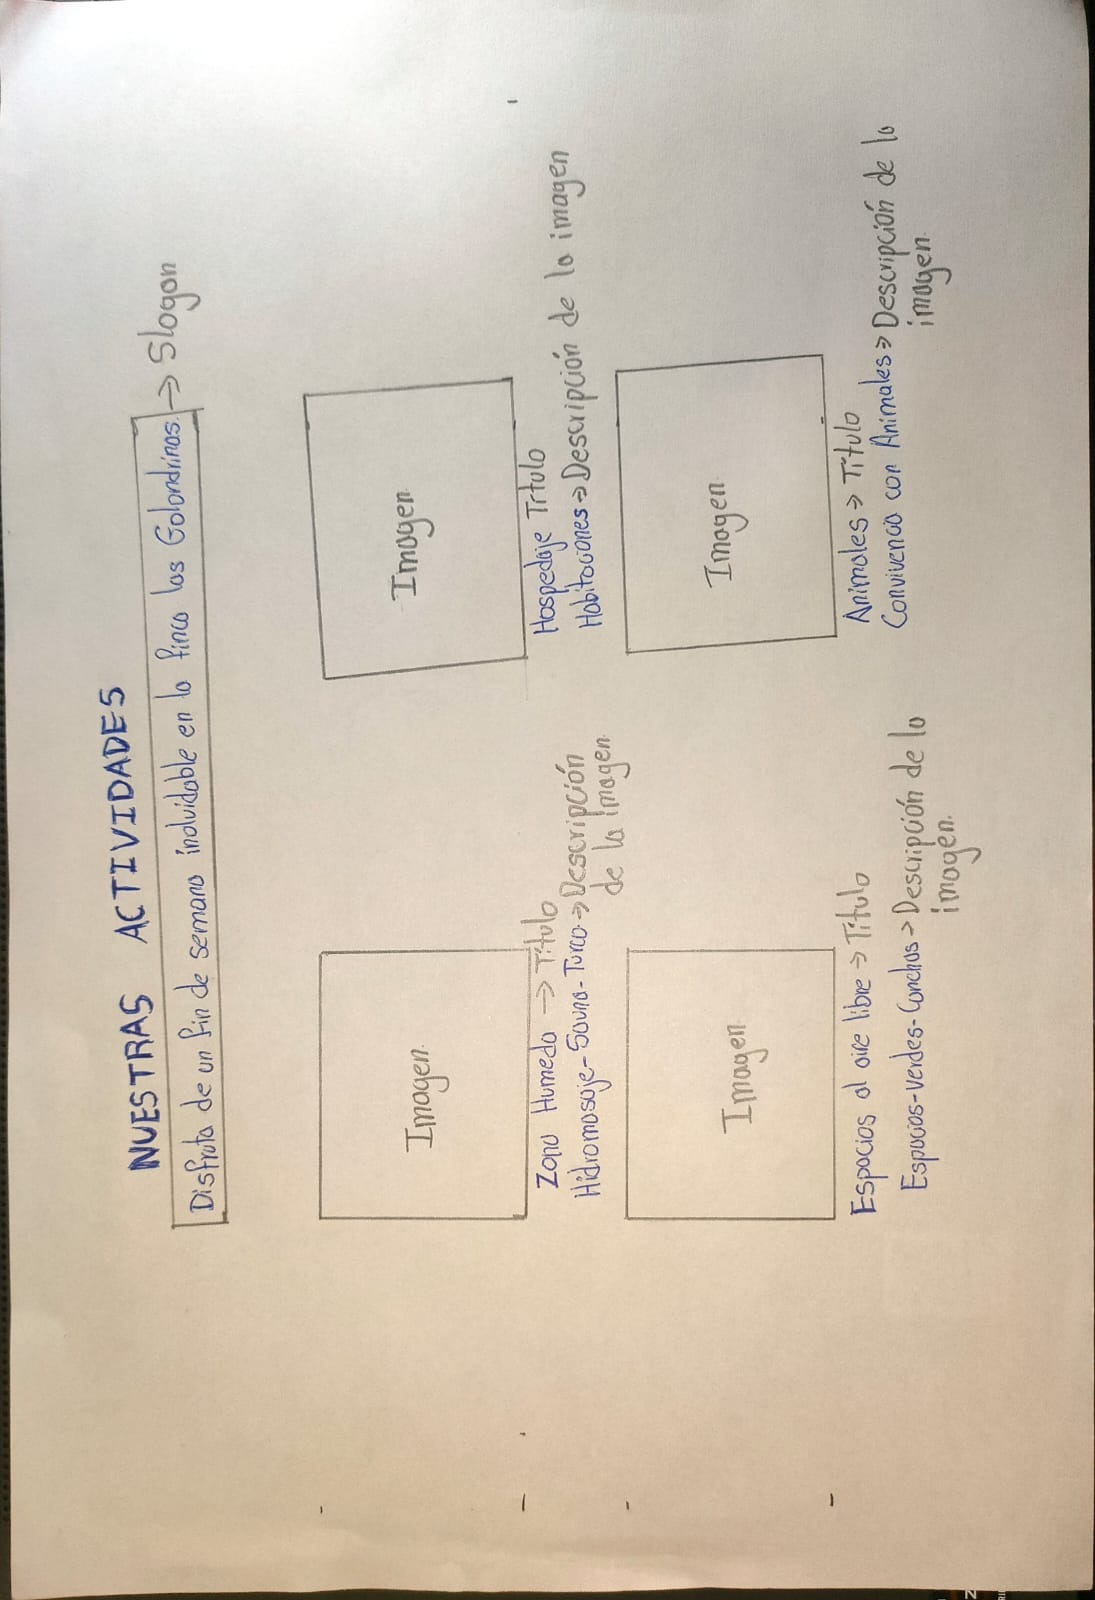 NUESTRAS ACTIVIDADES
Disfruta de un fin de semana inolvidable en la finca las Golondrinas. → Slogan
Imagen.
Zona Humeda → Título
Hidromasaje - Sauna - Turco. ⇒ Descripción
de la Imagen.
Imagen
Hospedaje Título
Habitaciones ⇒ Descripción de la imagen
Imagen
Espacios al aire libre ⇒ Título
Espacios - Verdes - Canchas ⇒ Descripción de la
imagen.
Imagen
Animales ⇒ Título
Convivencia con Animales ⇒ Descripción de la
imagen.